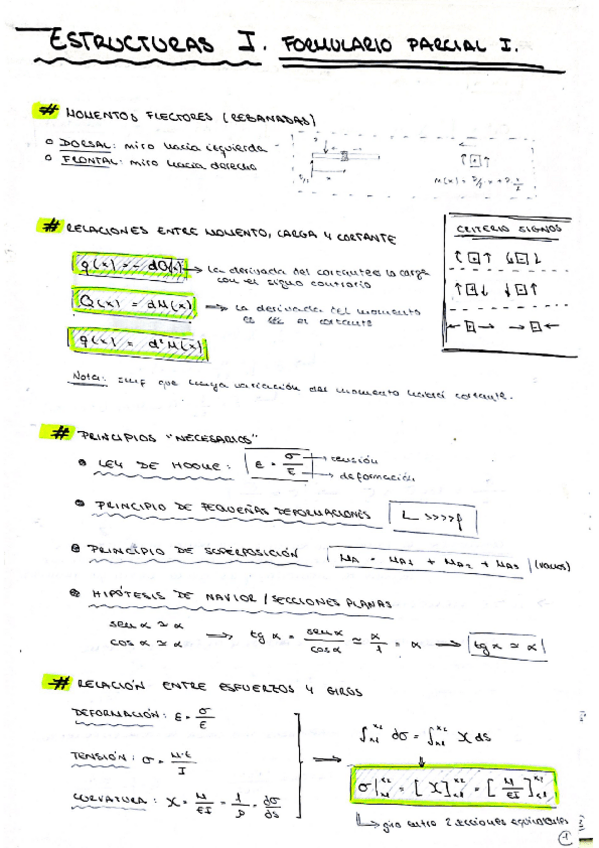 ESTRUCTURAS I. FORMULARIO PARCIAL I.
# MOMENTOS FLECTORES (REBANADAS)
DORSAL: miro hacia izquierda
FRONTAL: miro hacia derecha
# RELACIONES ENTRE MOMENTO, CARGA Y CORTANTE
CRITERIO SIGNOS
q(x) = - dQ(x) → La derivada del cortante es la carga
con el signo contrario
Q(x) = dM(x) → La derivada del momento
es el cortante
q(x) = d²M(x)
Nota: que haya variación del momento habrá cortante.
# PRINCIPIOS "NECESARIOS"
LEY DE HOOKE: ε = σ/E → tensión
→ deformación
PRINCIPIO DE PEQUEÑAS DEFORMACIONES L >>>> f
PRINCIPIO DE SUPERPOSICIÓN MA = MA1 + MA2 + MA3
HIPÓTESIS DE NAVIOR / SECCIONES PLANAS
sen α ≃ α
cos α ≃ α → tg α = sen α / cos α ≃ α/1 = α → tg α ≃ α
# RELACIÓN ENTRE ESFUERZOS Y GIROS
DEFORMACIÓN: ε = σ/E
TENSIÓN: σ =
CURVATURA: X = M/EI = 1/ρ = dσ/ds
∫ dσ = ∫ X ds
σ| = [X] = [M/EI]
giro entre 2 secciones
1